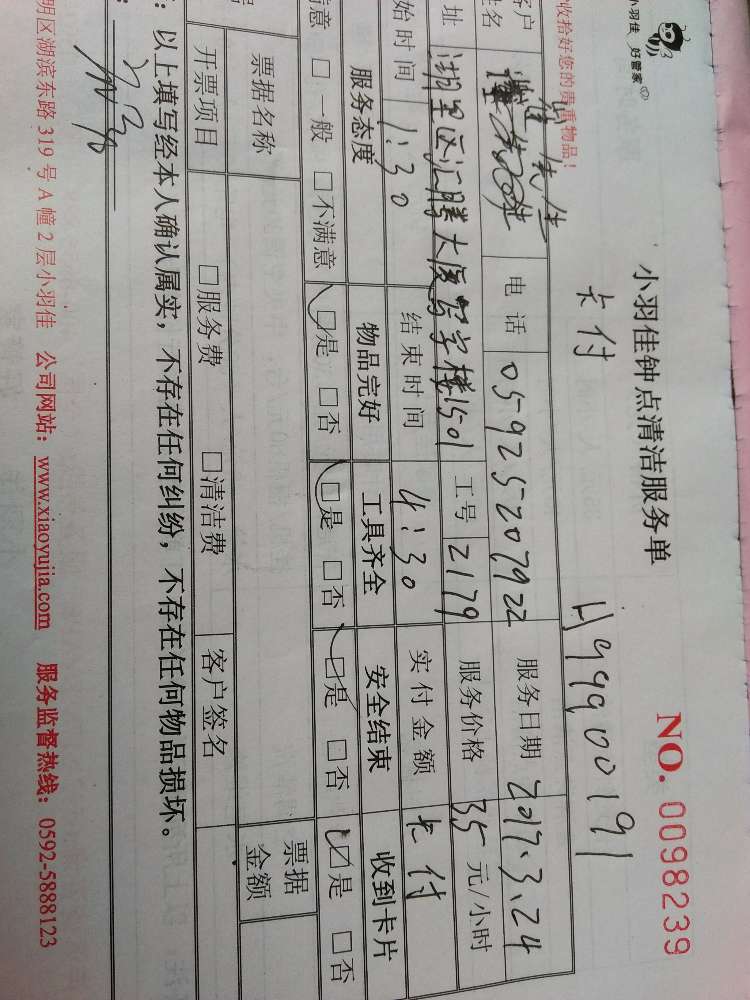 小羽佳 好管家
小羽佳钟点清洁服务单
NO. 0098239
收拾好您的贵重物品！
卡付 H99900191
客户
姓名
先生
电话 05925207922 服务日期 2017.3.24
址 湖里区汇腾大厦写字楼1501 工号 2179 服务价格 35元/小时
始时间 1:30 结束时间 4:30 实付金额 卡付
服务态度 物品完好 工具齐全 安全结束 收到卡片
意 □一般 □不满意 □是 □否 □是 □否 □是 □否 □是 □否
票据名称 票据
金额
开票项目 □服务费 □清洁费 客户签名
：以上填写经本人确认属实，不存在任何纠纷，不存在任何物品损坏。
明区湖滨东路 319 号 A 幢 2 层小羽佳 公司网站：www.xiaoyujia.com 服务监督热线：0592-5888123